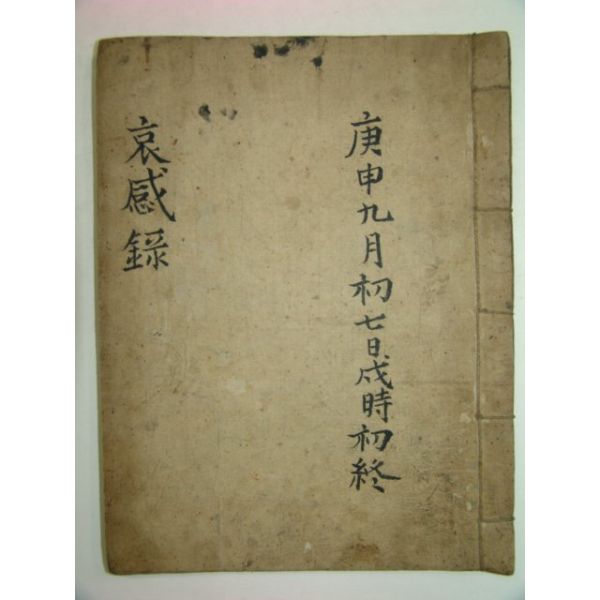 庚申九月初七日戌時初終
哀感録